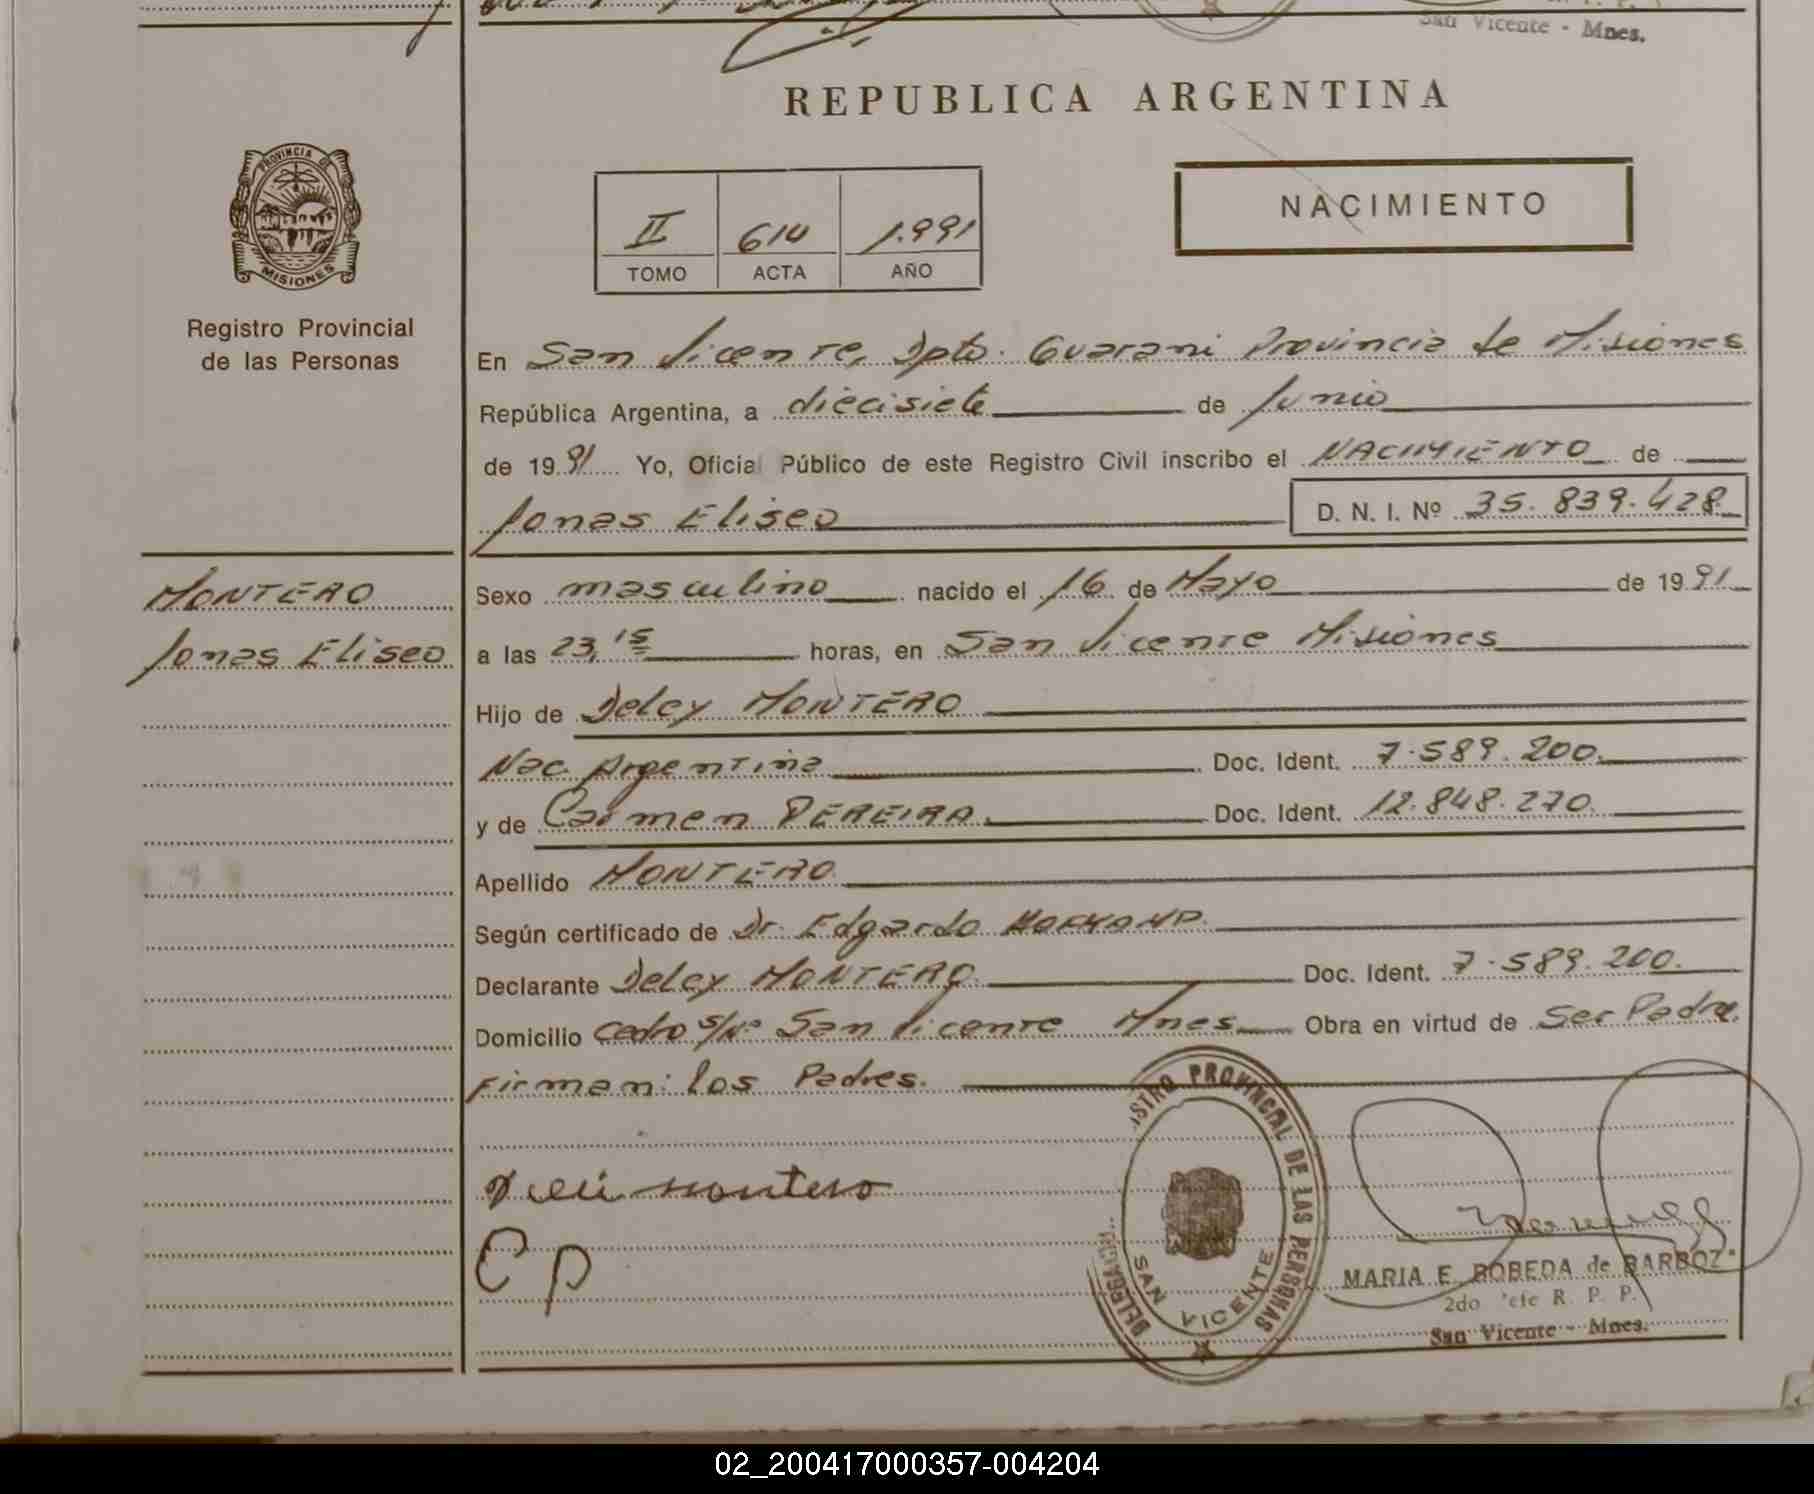 San Vicente - Mnes.
REPUBLICA ARGENTINA
PROVINCIA DE
MISIONES
Registro Provincial
de las Personas
II 614 1.991
TOMO ACTA AÑO
NACIMIENTO
En San Vicente, Dpto. Guarani Provincia de Misiones
República Argentina, a diecisiete de Junio
de 1991 Yo, Oficial Público de este Registro Civil inscribo el NACIMIENTO de
Jonas Eliseo D. N. I. Nº 35.839.428
MONTERO
Jonas Eliseo
Sexo masculino nacido el 16 de Mayo de 1991
a las 23,15 horas, en San Vicente Misiones
Hijo de Delcy MONTERO
Nac. Argentina Doc. Ident. 7.589.200.
y de Carmen PEREIRA. Doc. Ident. 12.848.270.
Apellido MONTERO
Según certificado de Dr. Edgardo
Declarante Delcy MONTERO. Doc. Ident. 7.589.200.
Domicilio Cedro s/Nº San Vicente Mnes. Obra en virtud de Ser Padre.
Firman: los Padres.
montero
C P
STRO PROVINCIAL DE LAS PERSONAS
SAN VICENTE
MARIA E. BOBEDA de BARBOZ
2do R. P. P.
San Vicente - Mnes.
02_200417000357-004204